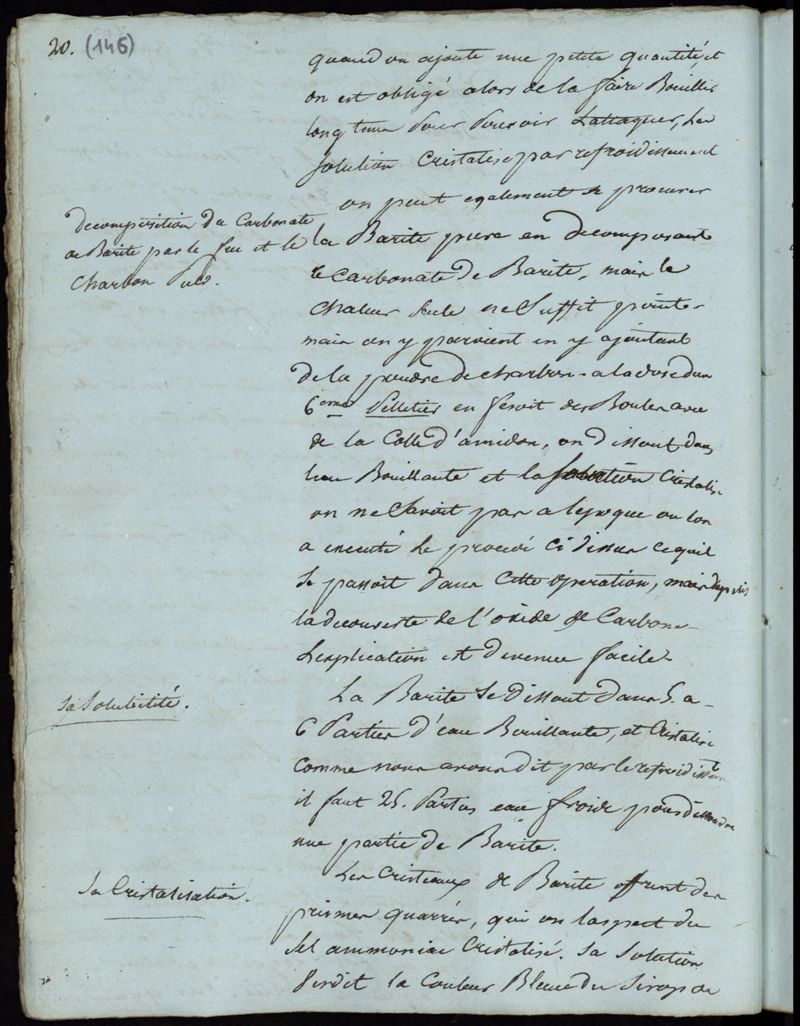 20. (146)
quand on ajoute une petite quantité, et
on est obligé alors de la faire Bouillir
long tems pour pouvoir Lattaquer, La
Solution Cristalise par refroidissement
on peut egalement se procurer
Decomposition du Carbonate
de Barite par le feu et le
Charbon
la Barite pure en decomposant
le Carbonate de Barite, mais la
Chaleur seule ne Suffit point
mais on y parvient en y ajoutant
de la poudre de charbon a la dose dun
6eme Pelletier en fesoit des Boules avec
de la Colle d'amidon, on dissout dans
leau Bouillante et la Solution Cristalise
on ne Savoit pas a lepoque ou lon
a executé le procédé ci dessus ce quil
se passoit dans cette operation, mais depuis
la decouverte de l'oxide de Carbone
Lexplication est devenue facile
Sa Solubilité.
La Barite se dissout dans 5. a
6 Parties d'eau Bouillante, et Cristalise
comme nous avons dit par le refroidissement
il faut 25. Parties eau froide pour dissoudre
une partie de Barite.
Sa Cristalisation.
Les Cristeaux de Barite offrent des
prismes quarrés, qui on laspect du
Sel ammoniac Cristalisé. Sa Solution
Verdit la Couleur Bleue du Sirop de